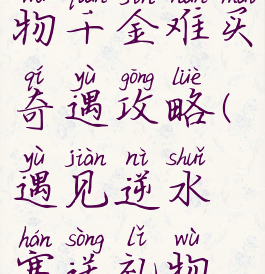 物千金难买
qí yù gōng lüè
奇遇攻略(
yù jiàn nì shuǐ
遇见逆水
hán sòng lǐ wù
寒送礼物